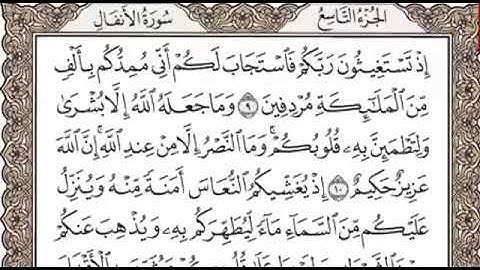 الجزء التاسع
سورة الأنفال
إِذْ تَسْتَغِيثُونَ رَبَّكُمْ فَٱسْتَجَابَ لَكُمْ أَنِّى مُمِدُّكُم بِأَلْفٍ
مِّنَ ٱلْمَلَٰٓئِكَةِ مُرْدِفِينَ ٩ وَمَا جَعَلَهُ ٱللَّهُ إِلَّا بُشْرَىٰ
وَلِتَطْمَئِنَّ بِهِۦ قُلُوبُكُمْ ۚ وَمَا ٱلنَّصْرُ إِلَّا مِنْ عِندِ ٱللَّهِ ۚ إِنَّ ٱللَّهَ
عَزِيزٌ حَكِيمٌ ١٠ إِذْ يُغَشِّيكُمُ ٱلنُّعَاسَ أَمَنَةً مِّنْهُ وَيُنَزِّلُ
عَلَيْكُم مِّنَ ٱلسَّمَآءِ مَآءً لِّيُطَهِّرَكُم بِهِۦ وَيُذْهِبَ عَنكُمْ